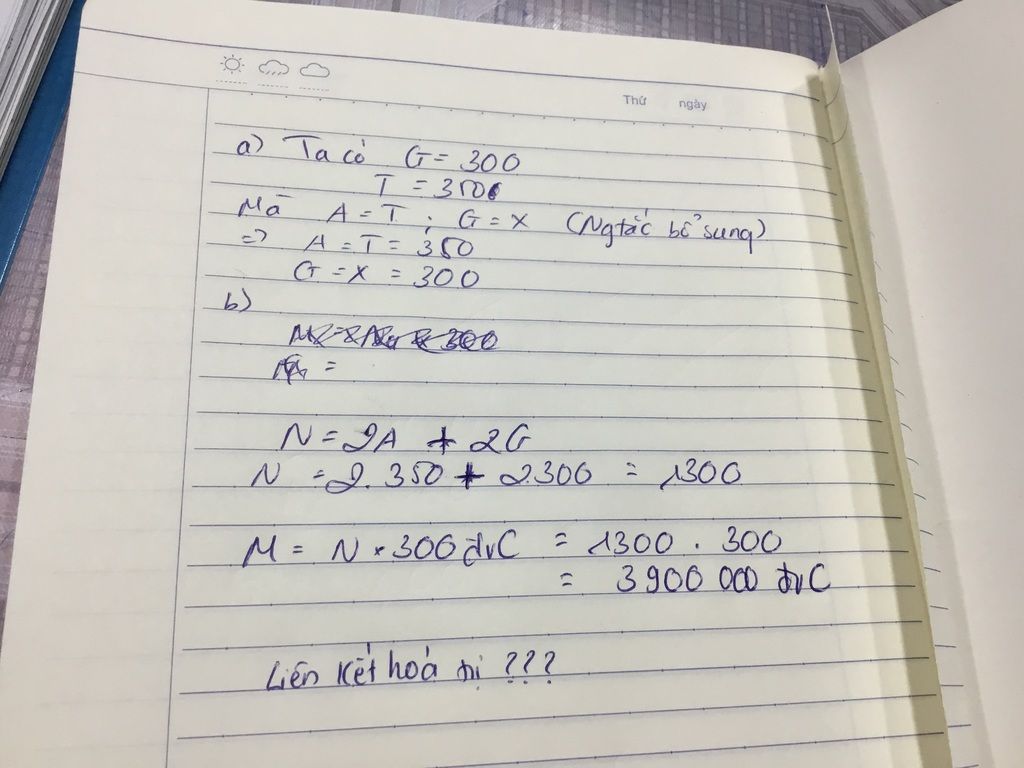 Thứ ngày
a) Ta có G = 300
T = 350
Mà A = T ; G = X (Ng tắc bổ sung)
=> A = T = 350
G = X = 300
b)
=
N = 2A + 2G
N = 2. 350 + 2.300 = 1300
M = N × 300 đvC = 1300 . 300
= 3900 000 đvC
Liên kết hoá trị ???